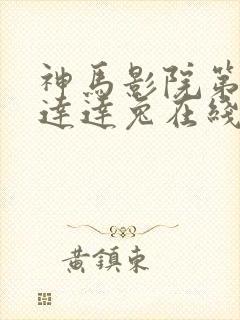 神馬影院第
達達兔在綫
黃鎮東